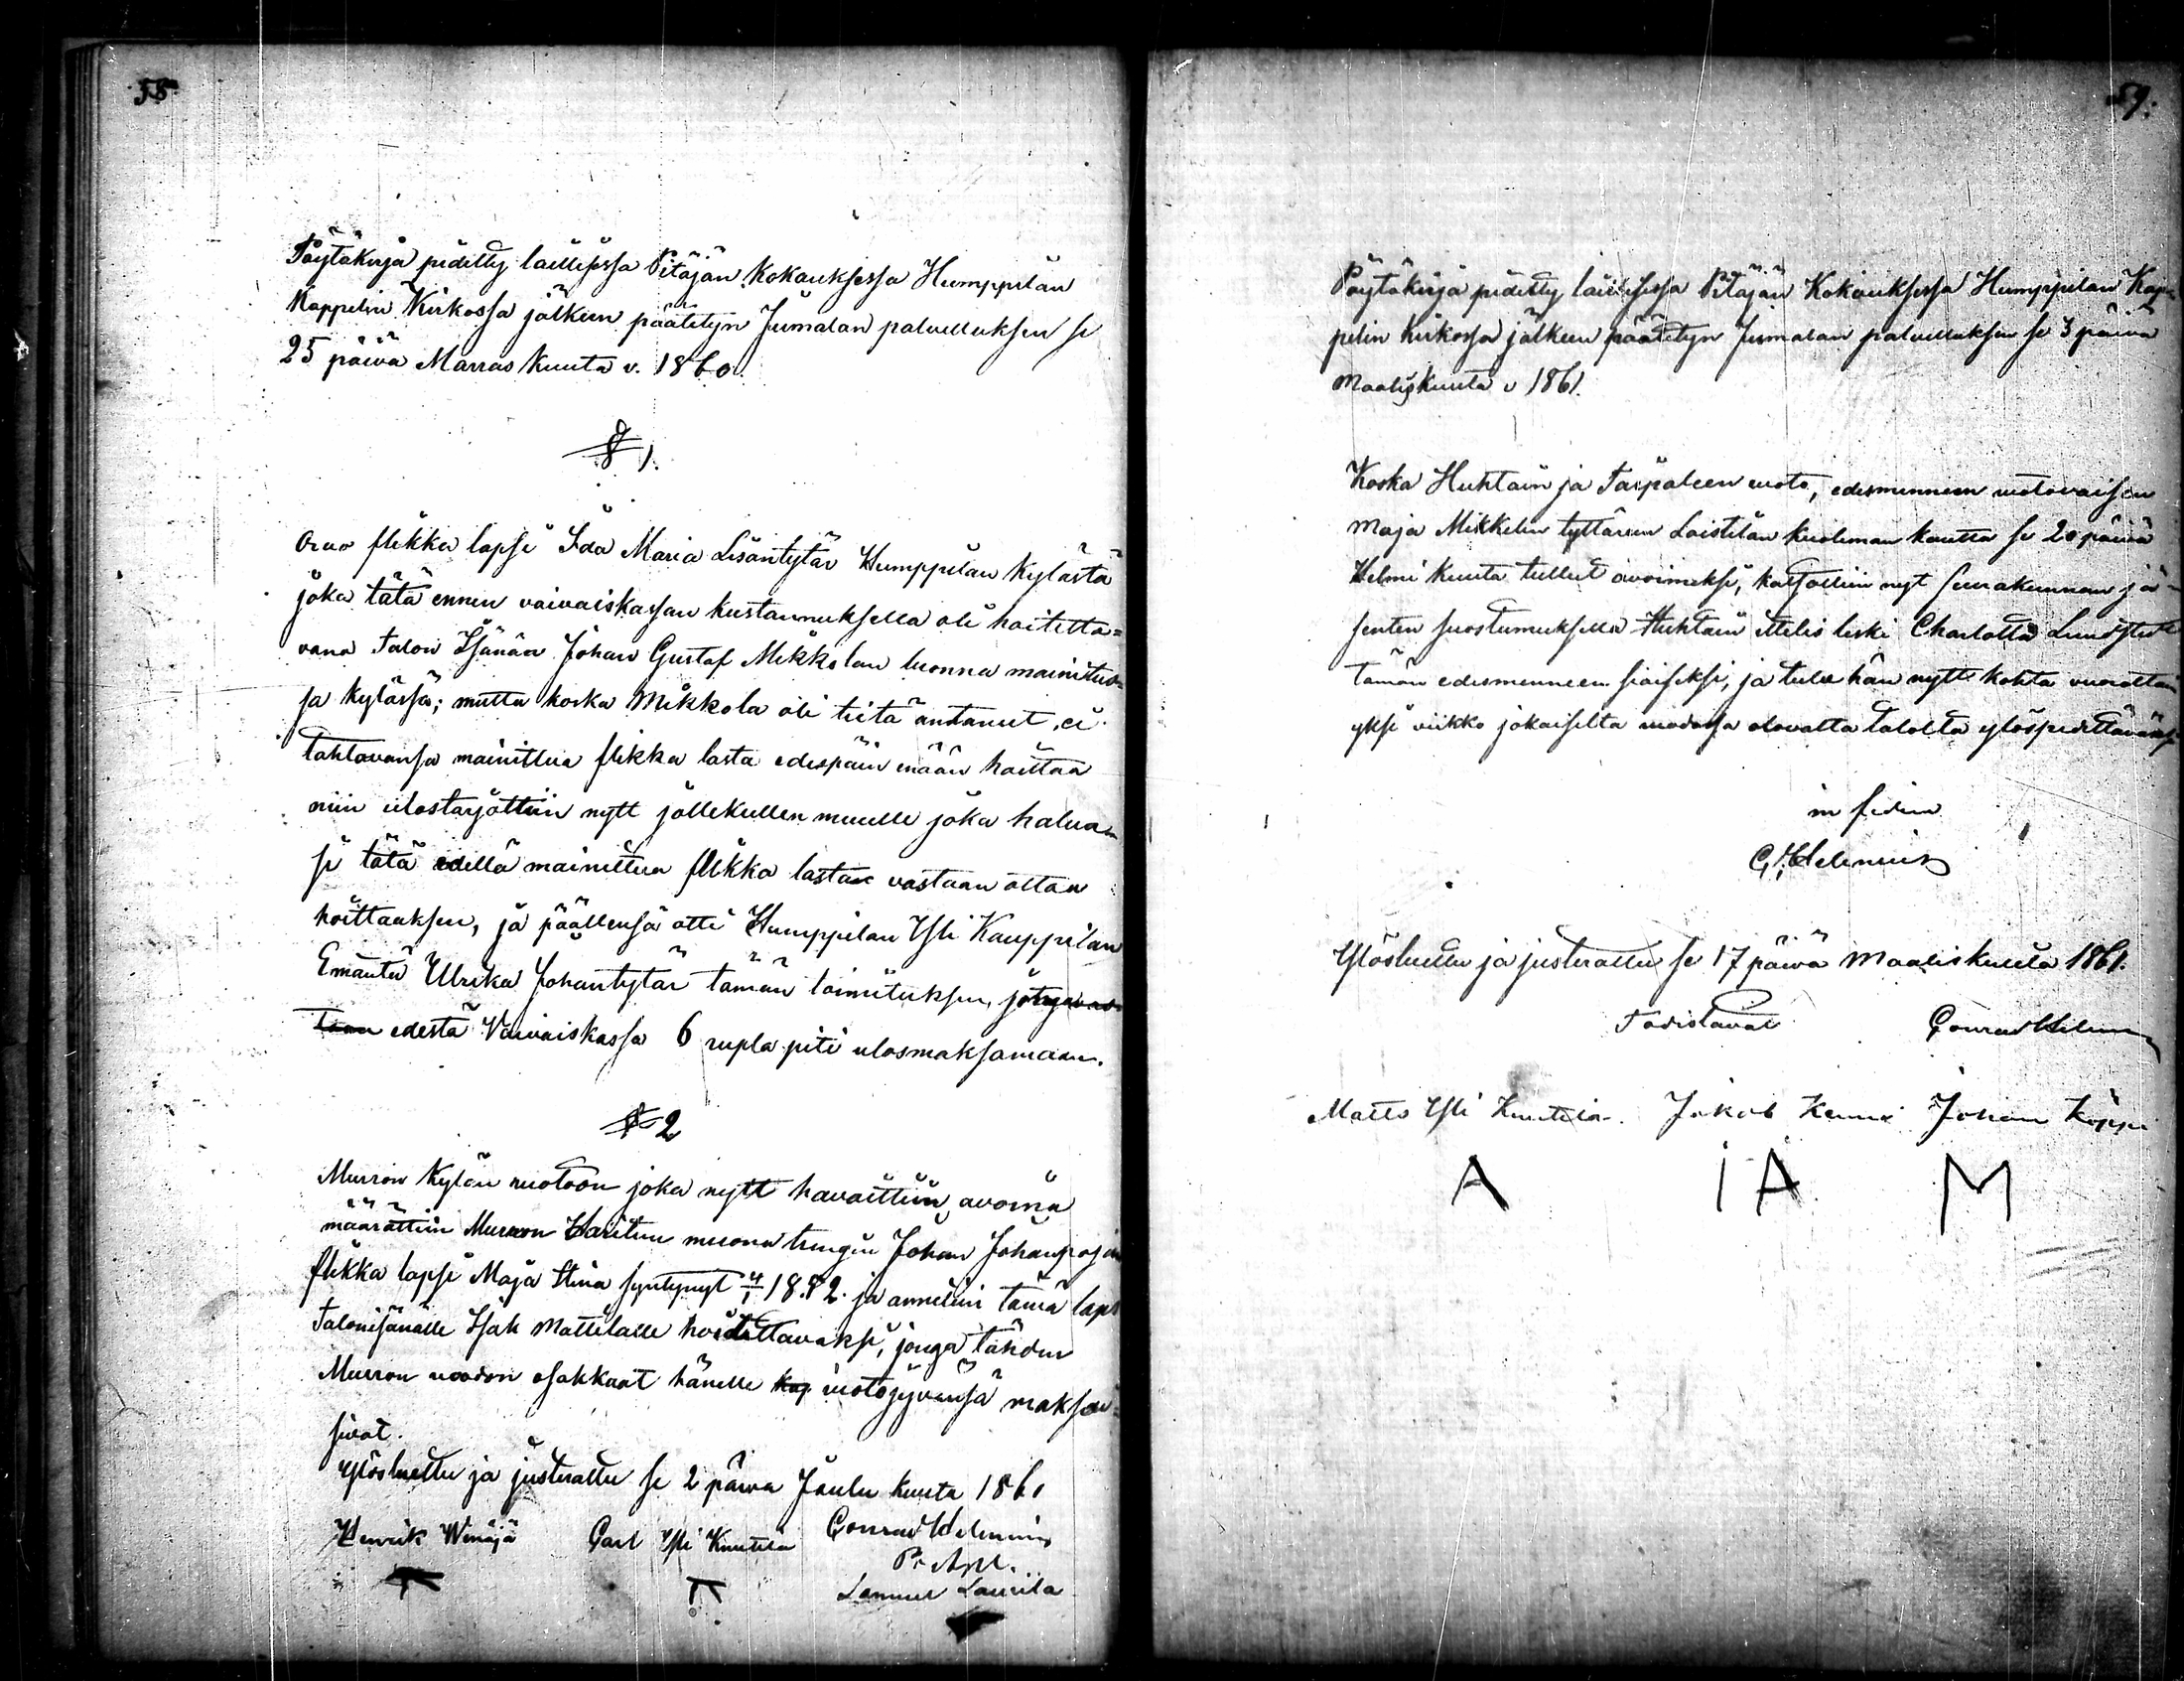 58
Pöytäkirja pidetty laillisessa Pitäjän Kokouksessa Humppilan
Kappelin Kirkossa jälkeen päätetyn Jumalan palvelluksen se
25 päivä Marras kuuta v. 1860.
§ 1.
Orvo flikka lapsi Ida Maria Lisäntytär Humppilan Kylästä
joka tätä ennen vaivaiskassan kustannuksella oli hoitetta=
vana Talon Isänän Johan Gustaf Mikkolan luonna mainitus=
sa kylässä; mutta koska Mikkola oli tietä andanut, ei
tahtovansa mainittua flikka lasta edespäin enään hoittaa
niin ulostarjottiin nytt jollekullen muulle joka halua=
si tätä edellä mainittua flikka lastan vastaan ottaa
hoittaaksen, ja päällensä otti Humppilan Yli Kauppilan
Emäntä Ulrika Johantytär tämän toimituksen,
edestä Vaivaiskassa 6 rupla piti ulosmaksaman.
§ 2
Murron Kylän ruotoon joka nytt havaittiin avoina
määrättiin Murron Haritun muona trengin Johan Johanpojan
flikka lapsi Maja Stina syntynyt 4/1 1852. ja annetiin tämä laps
Talonisänälle Isak Mattilalle hoidettavaksi, jonga tähden
Murron vuodon osakkaat hänelle kap vuotojyvänsä maksai=
sivat.
Ylösluettu ja justerattu se 2 päivä Joulu kuuta 1860
Henrik Winäjä Carl Yli Knuutila Conrad Helenius
P. Apl.
Laurila
59.
Pöytäkirja pidetty laillisessa Pitäjän Kokouksessa Humppilan Kap=
pelin kirkossa jälkeen päätetyn Jumalan palvelluksen se 3 päivä
Maaliskuuta v 1861.
Koska Huhtain ja Taipaleen vuoto, edesmenneen vuotovaisen
Maja Mikkelin tyttären Laistilän kuoleman kautta se 20 päivä
Helmi kuuta tullut avoimeksi, katsottiin nyt seurakunnan jä=
senten suostumuksella Huhtain itellis leski Charlotta
tämän edesmenneen siaiseksi, ja tulee hän nytt kohta vuorottan
yksi viikko jokaiselta vuodossa olovalta talolta ylöspidettäväksi
in fidem
G. Helenius
Ylösluettu ja justerattu se 17 päivä Maaliskuuta 1861.
Todistavat Conrad Helenius
Matts Yli Knuutila. Jakob Johan
A I Ä M